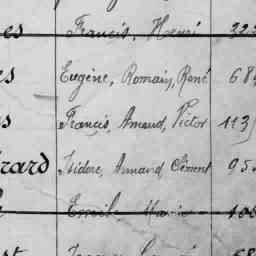 es Francis, Henri 322
es Eugène, Romain, René 68
es Francis, Amand, Victor 113
érard Isidore, Armand Clément 95
Emile Marie 106